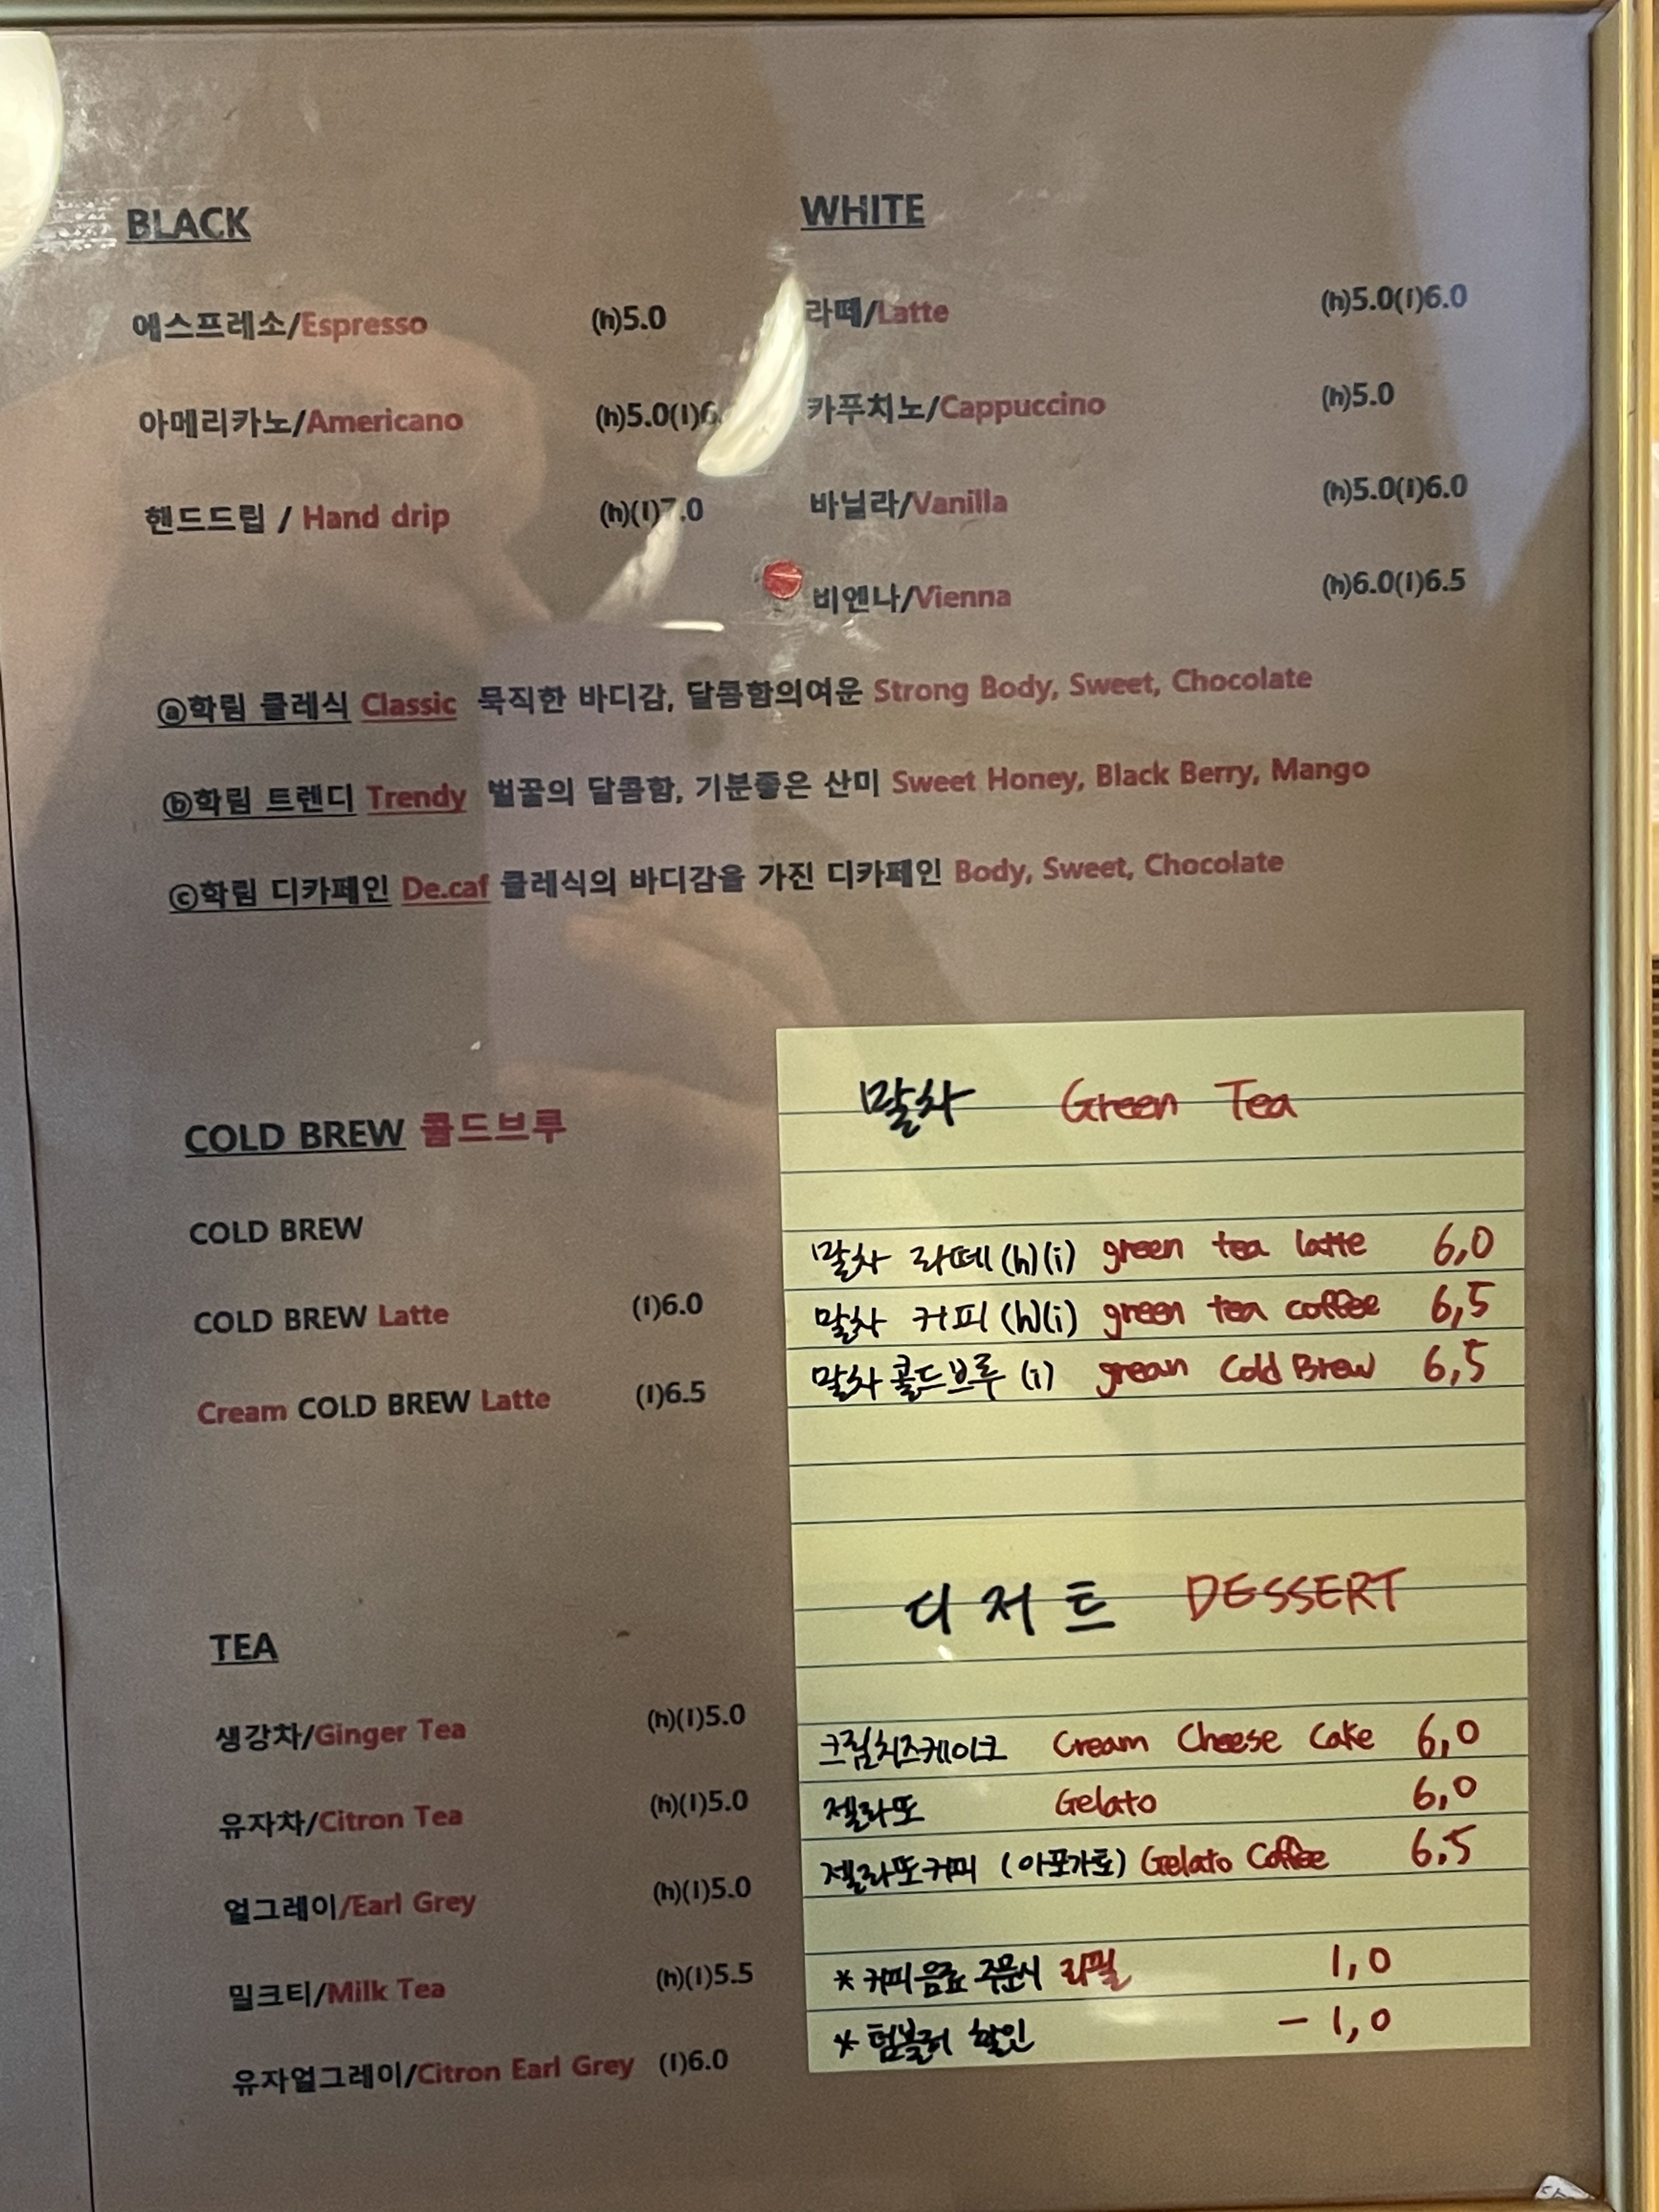 BLACK
에스프레소/Espresso (h)5.0
아메리카노/Americano (h)5.0(I)6.
핸드드립 / Hand drip (h)(I)7.0
WHITE
라떼/Latte (h)5.0(I)6.0
카푸치노/Cappuccino (h)5.0
바닐라/Vanilla (h)5.0(I)6.0
비엔나/Vienna (h)6.0(I)6.5
ⓐ학림 클래식 Classic 묵직한 바디감, 달콤함의여운 Strong Body, Sweet, Chocolate
ⓑ학림 트렌디 Trendy 벌꿀의 달콤함, 기분좋은 산미 Sweet Honey, Black Berry, Mango
ⓒ학림 디카페인 De.caf 클레식의 바디감을 가진 디카페인 Body, Sweet, Chocolate
COLD BREW 콜드브루
COLD BREW
COLD BREW Latte (I)6.0
Cream COLD BREW Latte (I)6.5
TEA
생강차/Ginger Tea (h)(I)5.0
유자차/Citron Tea (h)(I)5.0
얼그레이/Earl Grey (h)(I)5.0
밀크티/Milk Tea (h)(I)5.5
유자얼그레이/Citron Earl Grey (I)6.0
말차 Green Tea
말차 라떼 (h)(i) green tea latte 6,0
말차 커피 (h)(i) green tea coffee 6,5
말차 콜드브루 (i) grean Cold Brew 6,5
디저트 DESSERT
크림치즈케이크 Cream Cheese Cake 6,0
젤라또 Gelato 6,0
젤라또커피 (아포가토) Gelato Coffee 6.5
* 커피음료 주문시 리필 1,0
* 텀블러 할인 - 1,0